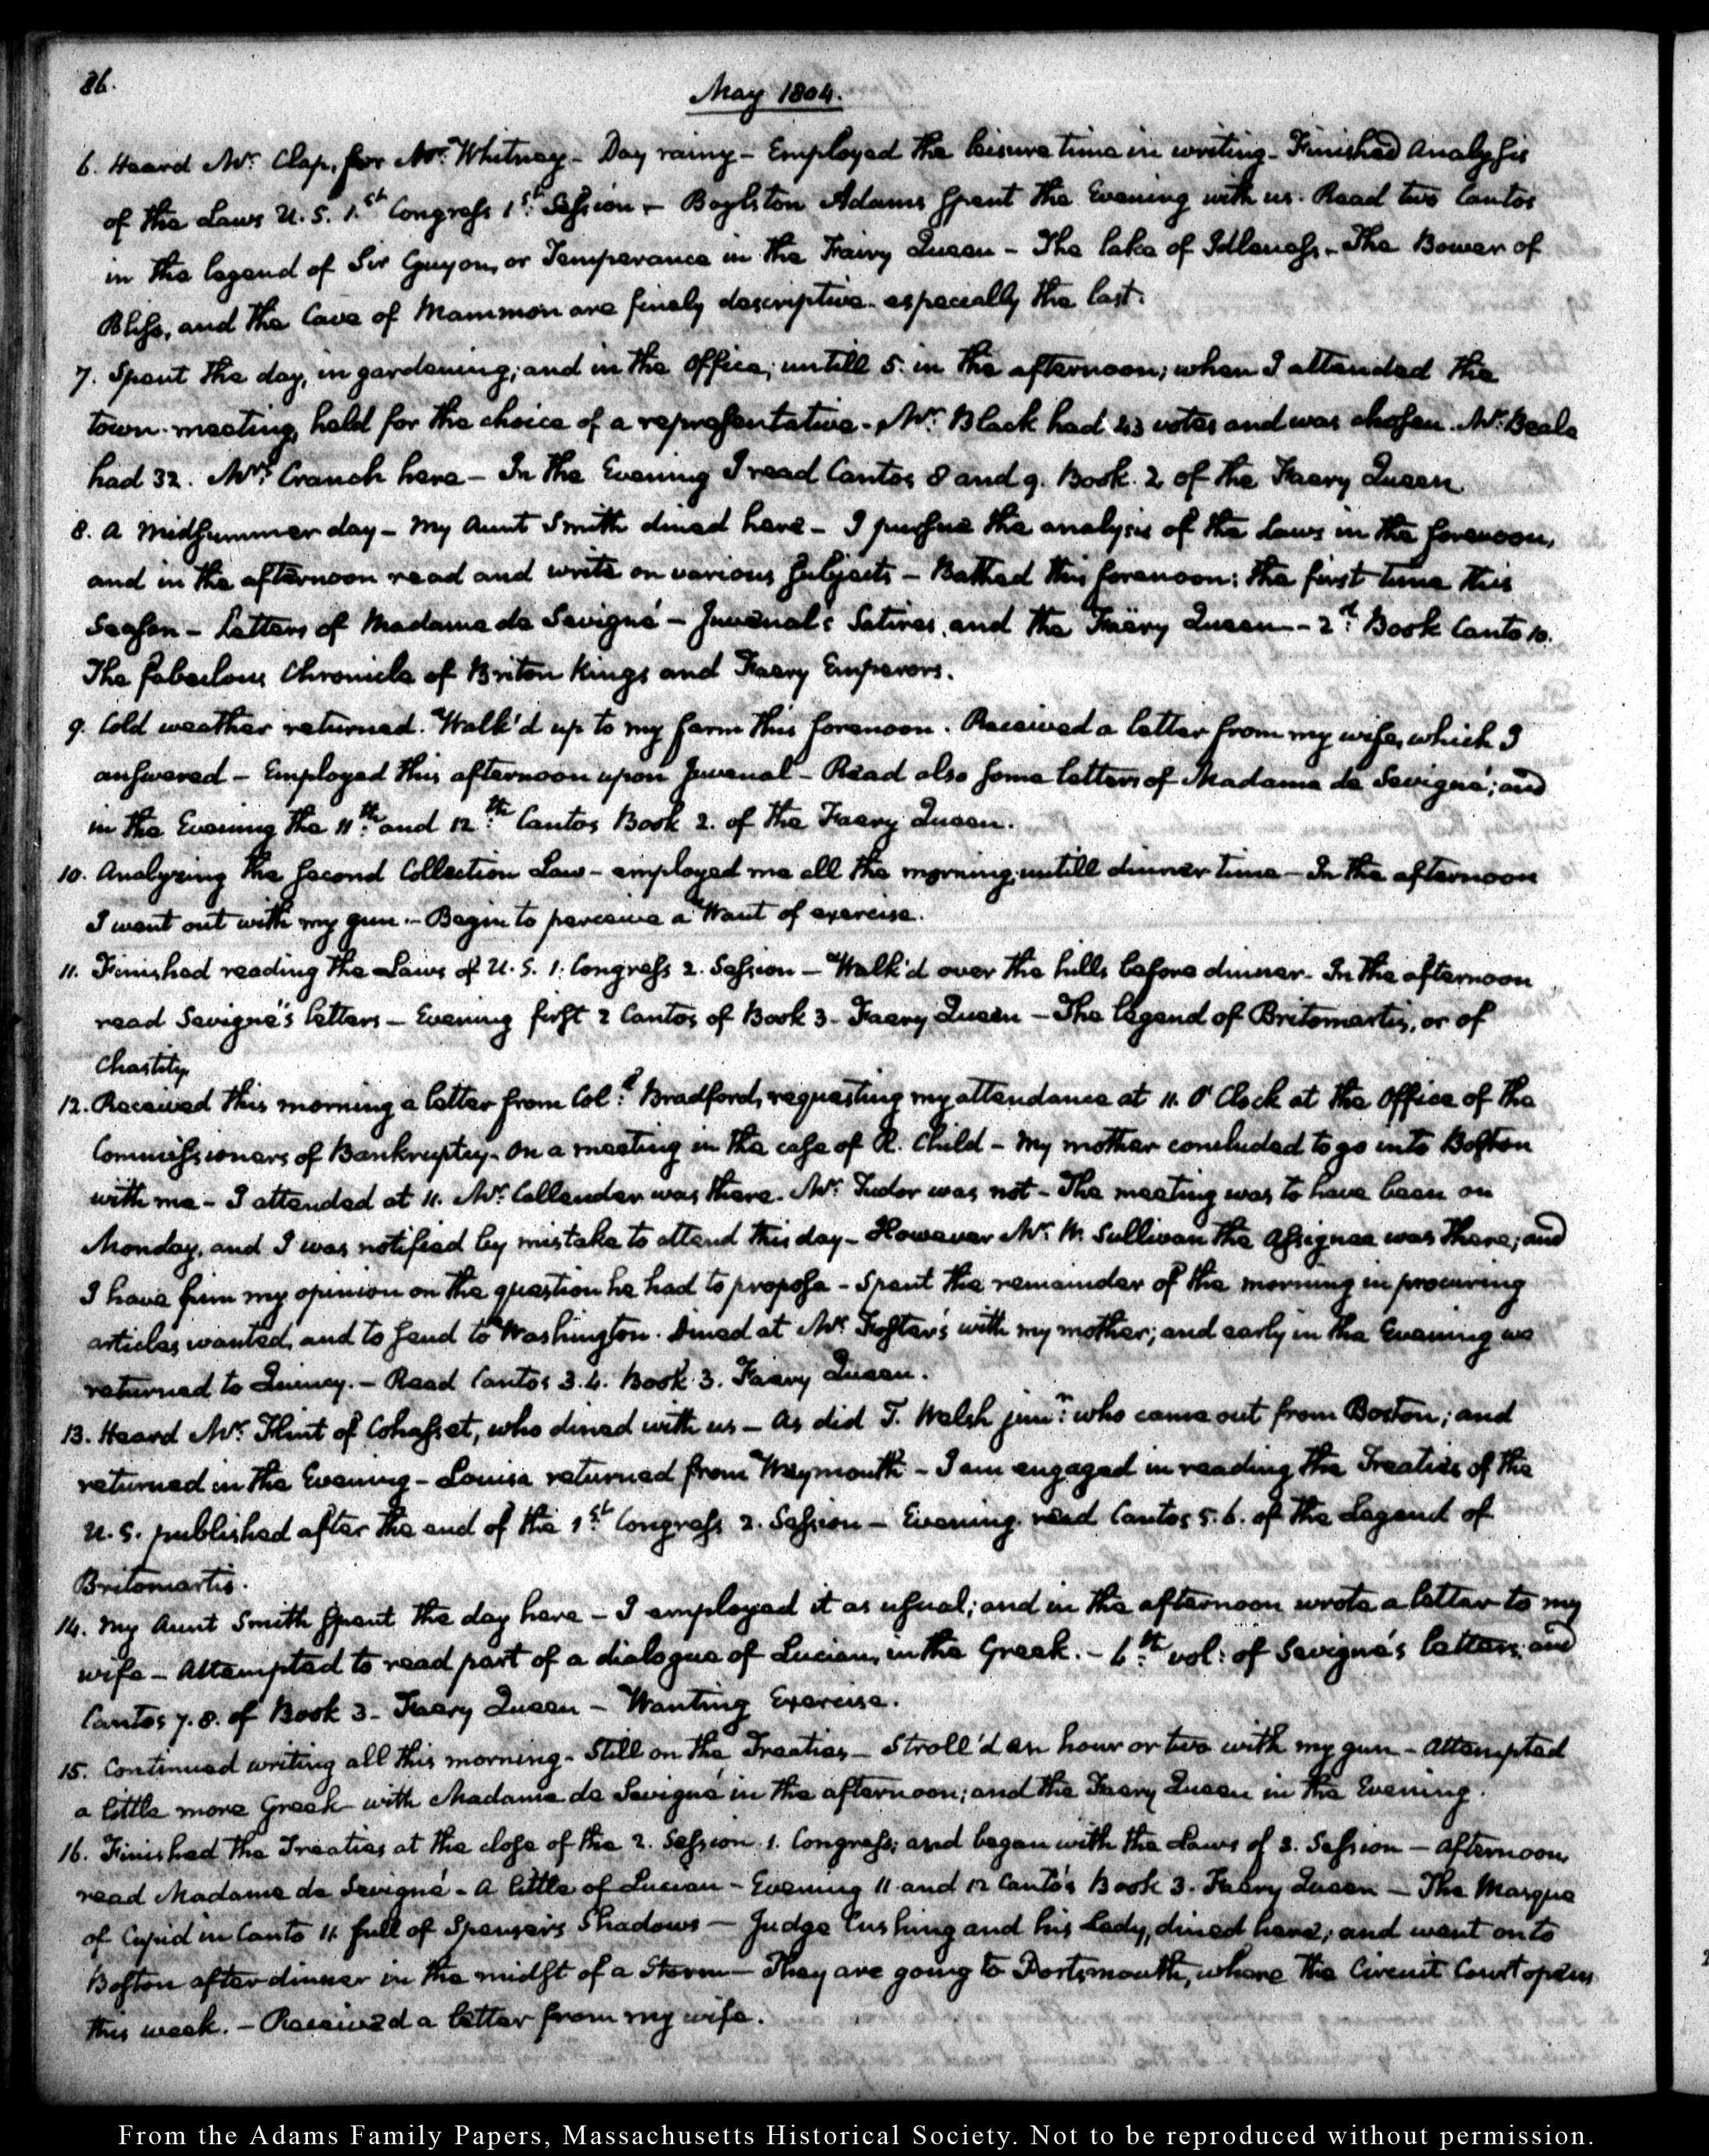 86.
May 1804.
6. Heard Mr. Clap, for Mr. Whitney - Day rainy - Employed the leisure time in writing - Finished Analysis
of the Laws U. S. 1.st Congress 1st. Session - Boylston Adams spent the Evening with us. Read two Cantos
in the legend of Sir Guyon, or Temperance in the Fairy Queen - The lake of Idleness - The Bower of
Bliss, and the Cave of Mammon are finely descriptive - especially the last.
7. Spent the day, in gardening; and in the office; untill 5. in the afternoon; when I attended the
town-meeting, held for the choice of a representative - Mr. Black had 43 votes and was chosen. Mr. Beale
had 32. Mrs. Cranch here - In the Evening I read Cantos 8 and 9. Book. 2 of the Faery Queen
8. A Midsummer day - My Aunt Smith dined here - I pursue the analysis of the Laws in the forenoon,
and in the afternoon read and write on various subjects - Bathed this forenoon: the first time this
Season - Letters of Madame de Sevigné - Juvenal's Satires, and the Faëry Queen - 2d. Book Canto 10.
The fabulous Chronicle of Briton Kings and Faery Emperors.
9. Cold weather returned. Walk'd up to my farm this forenoon. Received a letter from my wife, which I
answered - Employed this afternoon upon Juvenal - Read also some letters of Madame de Sevigné; and
in the Evening the 11th. and 12th. Cantos Book 2. of the Faery Queen.
10. Analyzing the second Collection Law - employed me all the morning, untill dinner time - In the afternoon
I went out with my gun. - Begin to perceive a Want of exercise.
11. Finished reading the Laws of U. S. 1. Congress 2. Session - Walk'd over the hills before dinner. In the afternoon
read Sevigné's letters - Evening first 2 Cantos of Book 3 - Faery Queen - The legend of Britomartis, or of
Chastity.
12. Received this morning a letter from Coll. Bradford, requesting my attendance at 11. O'Clock at the Office of the
Commissioners of Bankruptcy - On a meeting in the case of R. Child - My mother concluded to go into Boston
with me - I attended at 11. Mr. Callender was there. Mr. Tudor was not - The meeting was to have been on
Monday, and I was notified by mistake to attend this day - However Mr. W. Sullivan the Assignee was there; and
I have him my opinion on the question he had to propose - Spent the remainder of the morning in procuring
articles wanted, and to send to Washington. Dined at Mr. Foster's with my mother; and early in the Evening we
returned to Quincy. - Read Cantos 3. 4. Book 3. Faery Queen.
13. Heard Mr. Flint of Cohasset, who dined with us - As did T. Welsh junr. who came out from Boston; and
returned in the Evening - Louisa returned from Weymouth - I am engaged in reading the Treaties of the
U. S. published after the end of the 1st. Congress 2. Session - Evening read Cantos 5. 6. of the Legend of
Britomartis.
14. My Aunt Smith spent the day here - I employed it as usual; and in the afternoon wrote a letter to my
wife - Attempted to read part of a dialogue of Lucian, in the Greek. - 6th. vol: of Sevigné's letters, and
Cantos 7. 8. of Book 3 - Faery Queen - Wanting Exercise.
15. Continued writing all this morning - Still on the Treaties - Stroll'd an hour or two with my gun - Attempted
a little more Greek - with Madame de Sevigné in the afternoon; and the Faery Queen in the Evening.
16. Finished the Treaties at the close of the 2. Session 1. Congress; and began with the Laws of 3. Session - Afternoon,
read Madame de Sevigné - A little of Lucian - Evening 11 and 12 Canto's Book 3. Faery Queen - The Masque
of Cupid in Canto 11. full of Spenser's Shadows - Judge Cushing and his Lady, dined here; and went on to
Boston after dinner in the midst of a Storm - They are going to Portsmouth, where the Circuit Court opens
this week. - Received a letter from my wife.
From the Adams Family Papers, Massachusetts Historical Society. Not to be reproduced without permission.